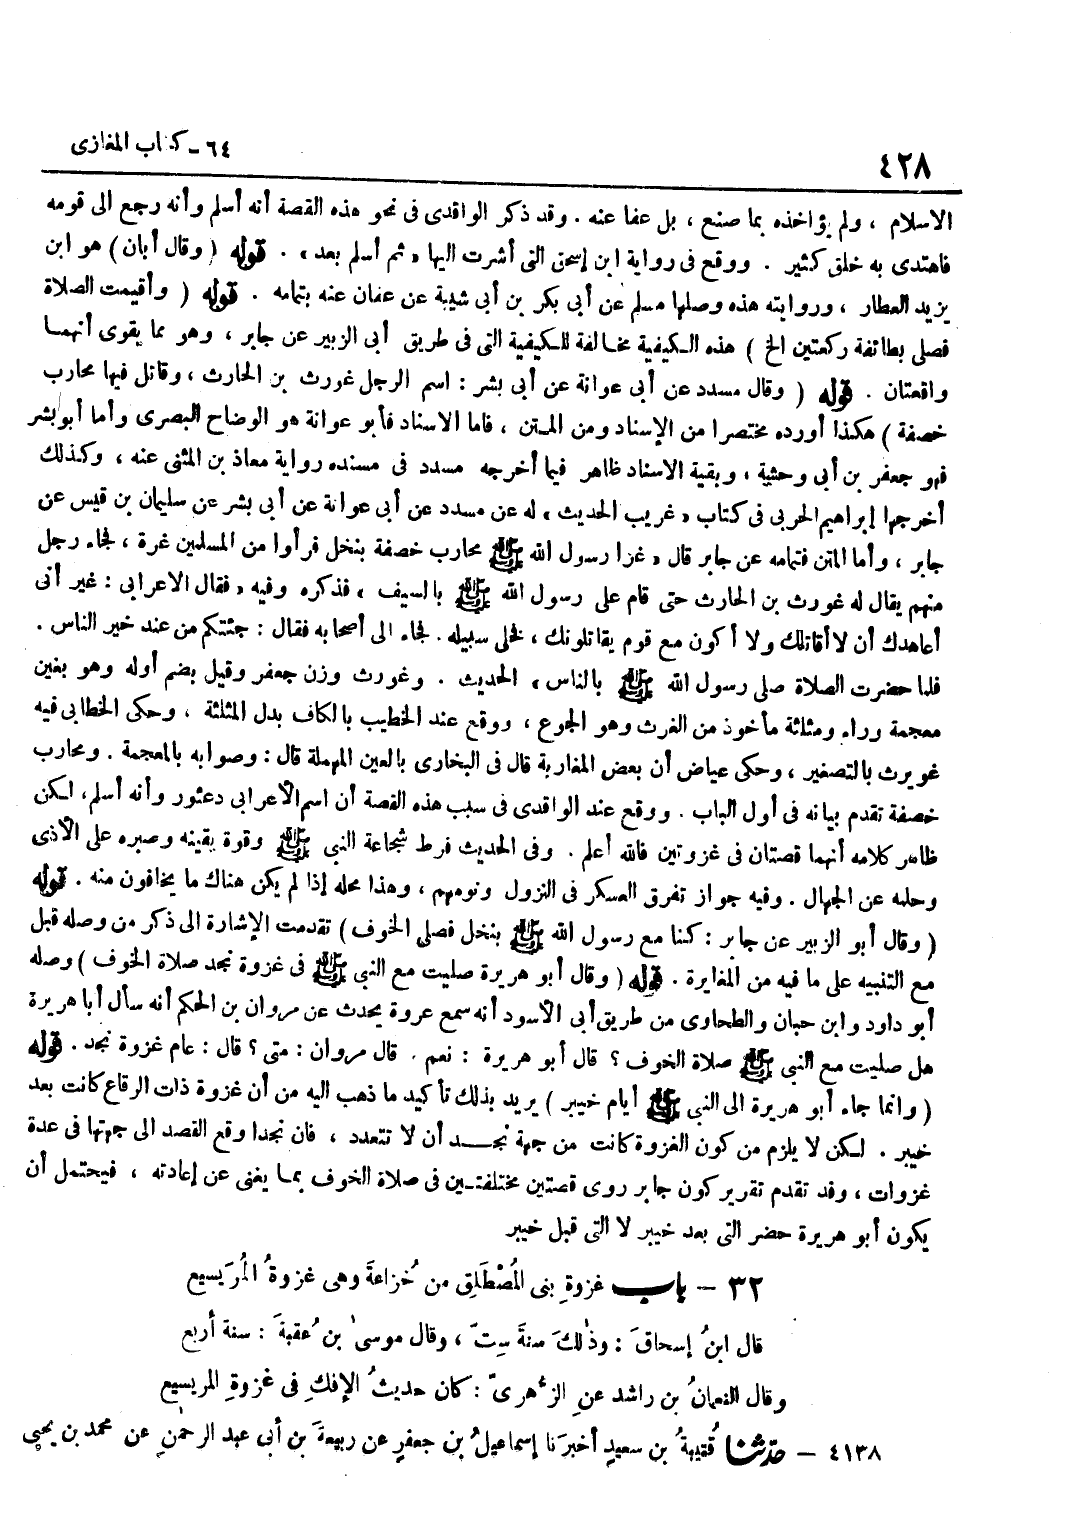 ٤٢٨
٦٤ - كتاب المغازى
الاسلام ، ولم يؤاخذه بما صنع ، بل عفا عنه . وقد ذكر الواقدى فى نحو هذه القصة أنه أسلم وأنه رجع الى قومه
فاهتدى به خلق كثير . ووقع فى رواية ابن إسحق التى أشرت اليها « ثم أسلم بعد » . قوله ( وقال أبان ) هو ابن
يزيد العطار ، وروايته هذه وصلها مسلم عن أبى بكر بن أبى شيبة عن عفان عنه بتمامه . قوله ( وأقيمت الصلاة
فصلى بطائفة ركعتين الخ ) هذه الكيفية مخالفة للكيفية التى فى طريق أبى الزبير عن جابر ، وهو مما يقوى أنهما
واقعتان . قوله ( وقال مسدد عن أبى عوانة عن أبى بشر : اسم الرجل غورث بن الحارث ، وقاتل فيها محارب
خصفة ) هكذا أورده مختصرا من الإسناد ومن المتن ، فاما الاسناد فأبو عوانة هو الوضاح البصرى وأما أبو بشر
فهو جعفر بن أبى وحشية ، وبقية الاسناد ظاهر فيما أخرجه مسدد فى مسنده رواية معاذ بن المثنى عنه ، وكذلك
أخرجها إبراهيم الحربى فى كتاب « غريب الحديث » له عن مسدد عن أبى عوانة عن أبى بشر عن سليمان بن قيس عن
جابر ، وأما المتن فتمامه عن جابر قال « غزا رسول الله ﷺ محارب خصفة بنخل فرأوا من المسلمين غرة ، فجاء رجل
منهم يقال له غورث بن الحارث حتى قام على رسول الله ﷺ بالسيف ، فذكره وفيه « فقال الاعرابى : غير أنى
أعاهدك أن لا أقاتلك ولا أكون مع قوم يقاتلونك ، فخلى سبيله . فجاء الى أصحابه فقال : جئتكم من عند خير الناس .
فلما حضرت الصلاة صلى رسول الله ﷺ بالناس ، الحديث . وغورث وزن جعفر وقيل بضم أوله وهو بغين
معجمة وراء ومثلثة مأخوذ من الغرث وهو الجوع ، ووقع عند الخطيب بالكاف بدل المثلثة ، وحكى الخطابى فيه
غويرث بالتصغير ، وحكى عياض أن بعض المغاربة قال فى البخارى بالعين المهملة قال : وصوابه بالمعجمة . ومحارب
خصفة تقدم بيانه فى أول الباب . ووقع عند الواقدى فى سبب هذه القصة أن اسم الأعرابى دعثور وأنه أسلم ، لكن
ظاهر كلامه أنهما قصتان فى غزوتين فالله أعلم . وفى الحديث فرط شجاعة النبى ﷺ وقوة يقينه وصبره على الأذى
وحلمه عن الجهال . وفيه جواز تفرق العسكر فى النزول ونومهم ، وهذا محله إذا لم يكن هناك ما يخافون منه . قوله
( وقال أبو الزبير عن جابر : كنا مع رسول الله ﷺ بنخل فصلى الخوف ) تقدمت الإشارة الى ذكر من وصله قبل
مع التنبيه على ما فيه من المغايرة . قوله ( وقال أبو هريرة صليت مع النبى ﷺ فى غزوة نجد صلاة الخوف ) وصله
أبو داود وابن حبان والطحاوى من طريق أبى الأسود أنه سمع عروة يحدث عن مروان بن الحكم أنه سأل أبا هريرة
هل صليت مع النبى ﷺ صلاة الخوف ؟ قال أبو هريرة : نعم . قال مروان : متى ؟ قال : عام غزوة نجد . قوله
( وانما جاء أبو هريرة الى النبى ﷺ أيام خيبر ) يريد بذلك تأكيد ما ذهب اليه من أن غزوة ذات الرقاع كانت بعد
خيبر . لكن لا يلزم من كون الغزوة كانت من جهة نجد أن لا تتعدد ، فان نجدا وقع القصد الى جهتها فى عدة
غزوات ، وقد تقدم تقرير كون جابر روى قصتين مختلفتين فى صلاة الخوف بما يغنى عن إعادته ، فيحتمل أن
يكون أبو هريرة حضر التى بعد خيبر لا التى قبل خيبر
٣٢ - باب غزوةِ بنى المُصْطَلِق من خُزاعةَ وهى غزوةُ المُرَيسيع
قال ابنُ إسحاقَ : وذٰلكَ سنةَ سِتّ ، وقال موسىٰ بنُ عُقبةَ : سنة أربع
وقال النعمانُ بن راشد عنِ الزُّهرىّ : كان حديثُ الإفكِ فى غزوةِ المريسيع
٤١٣٨ - حدّثنا قُتيبةُ بن سعيدٍ أخبرَنا إسماعيلُ بن جعفرٍ عن ربيعةَ بن أبى عبد الرحمٰنِ عن محمد بن يحيى